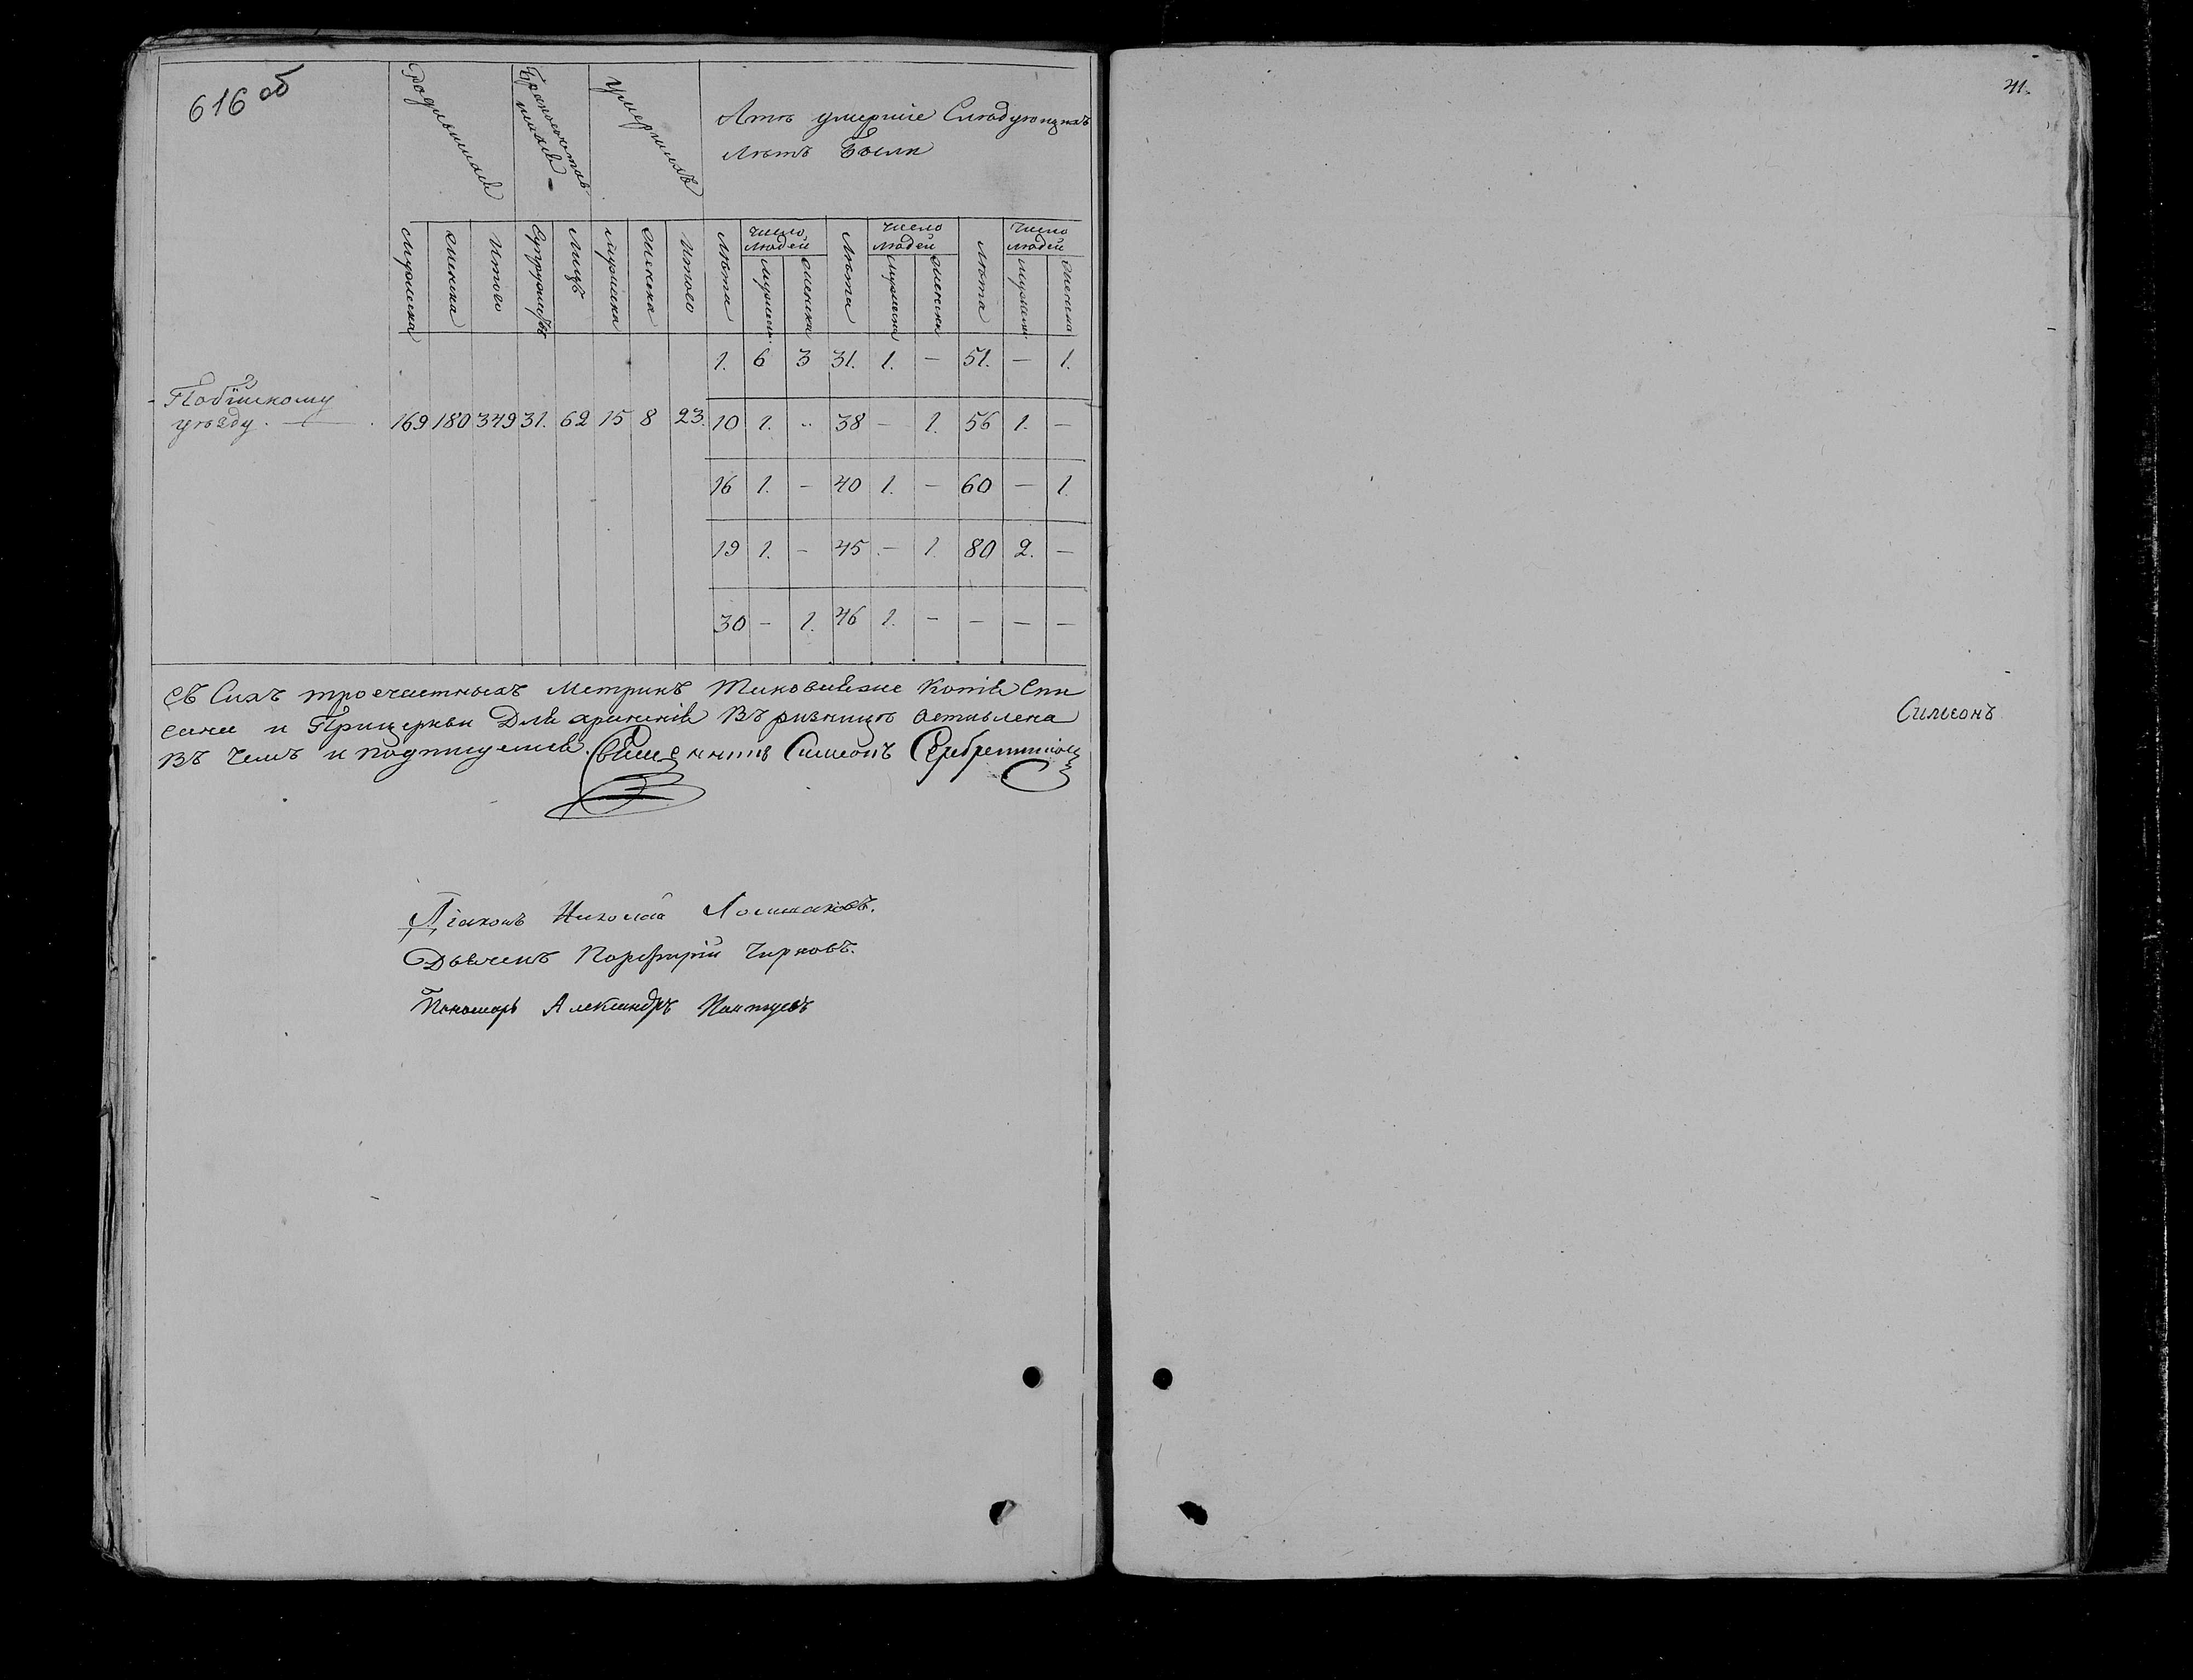 616 об
Родившихся
Бракосочетав
шихся
Умершихъ
Лѣтъ умершiе Слѣдующихъ
Лѣтъ Были
мужеска
женска
Итого
Супружѣствъ
Лицъ
мужеска
женска
Итого
Лѣта
число людей
мужеска
женска
Лѣта
число людей
мужеска
женска
Лѣта
число людей
мужеска
женска
1. 6 3 31. 1. — 51. — 1.
уѣзду. 169 180 349 31. 62 15 8 23. 10 1. .. 38 — 1. 56 1. —
16 1. — 40 1. — 60 — 1.
19 1. — 45 — 1 80 2. —
30 — 1. 46 1. — — — —
Съ Сихъ троечастныхъ Метрикъ Таковаяже Копiя Спи
сана и Прицеркви Для храненiя Въ ризницѣ Оставлена
Въ Чемъ и подписуемся. Священникъ Симеонъ
Дiаконъ Николай
Дьячекъ Порфирiй Чирковъ.
Пономарь Александръ
41.
Симеонъ